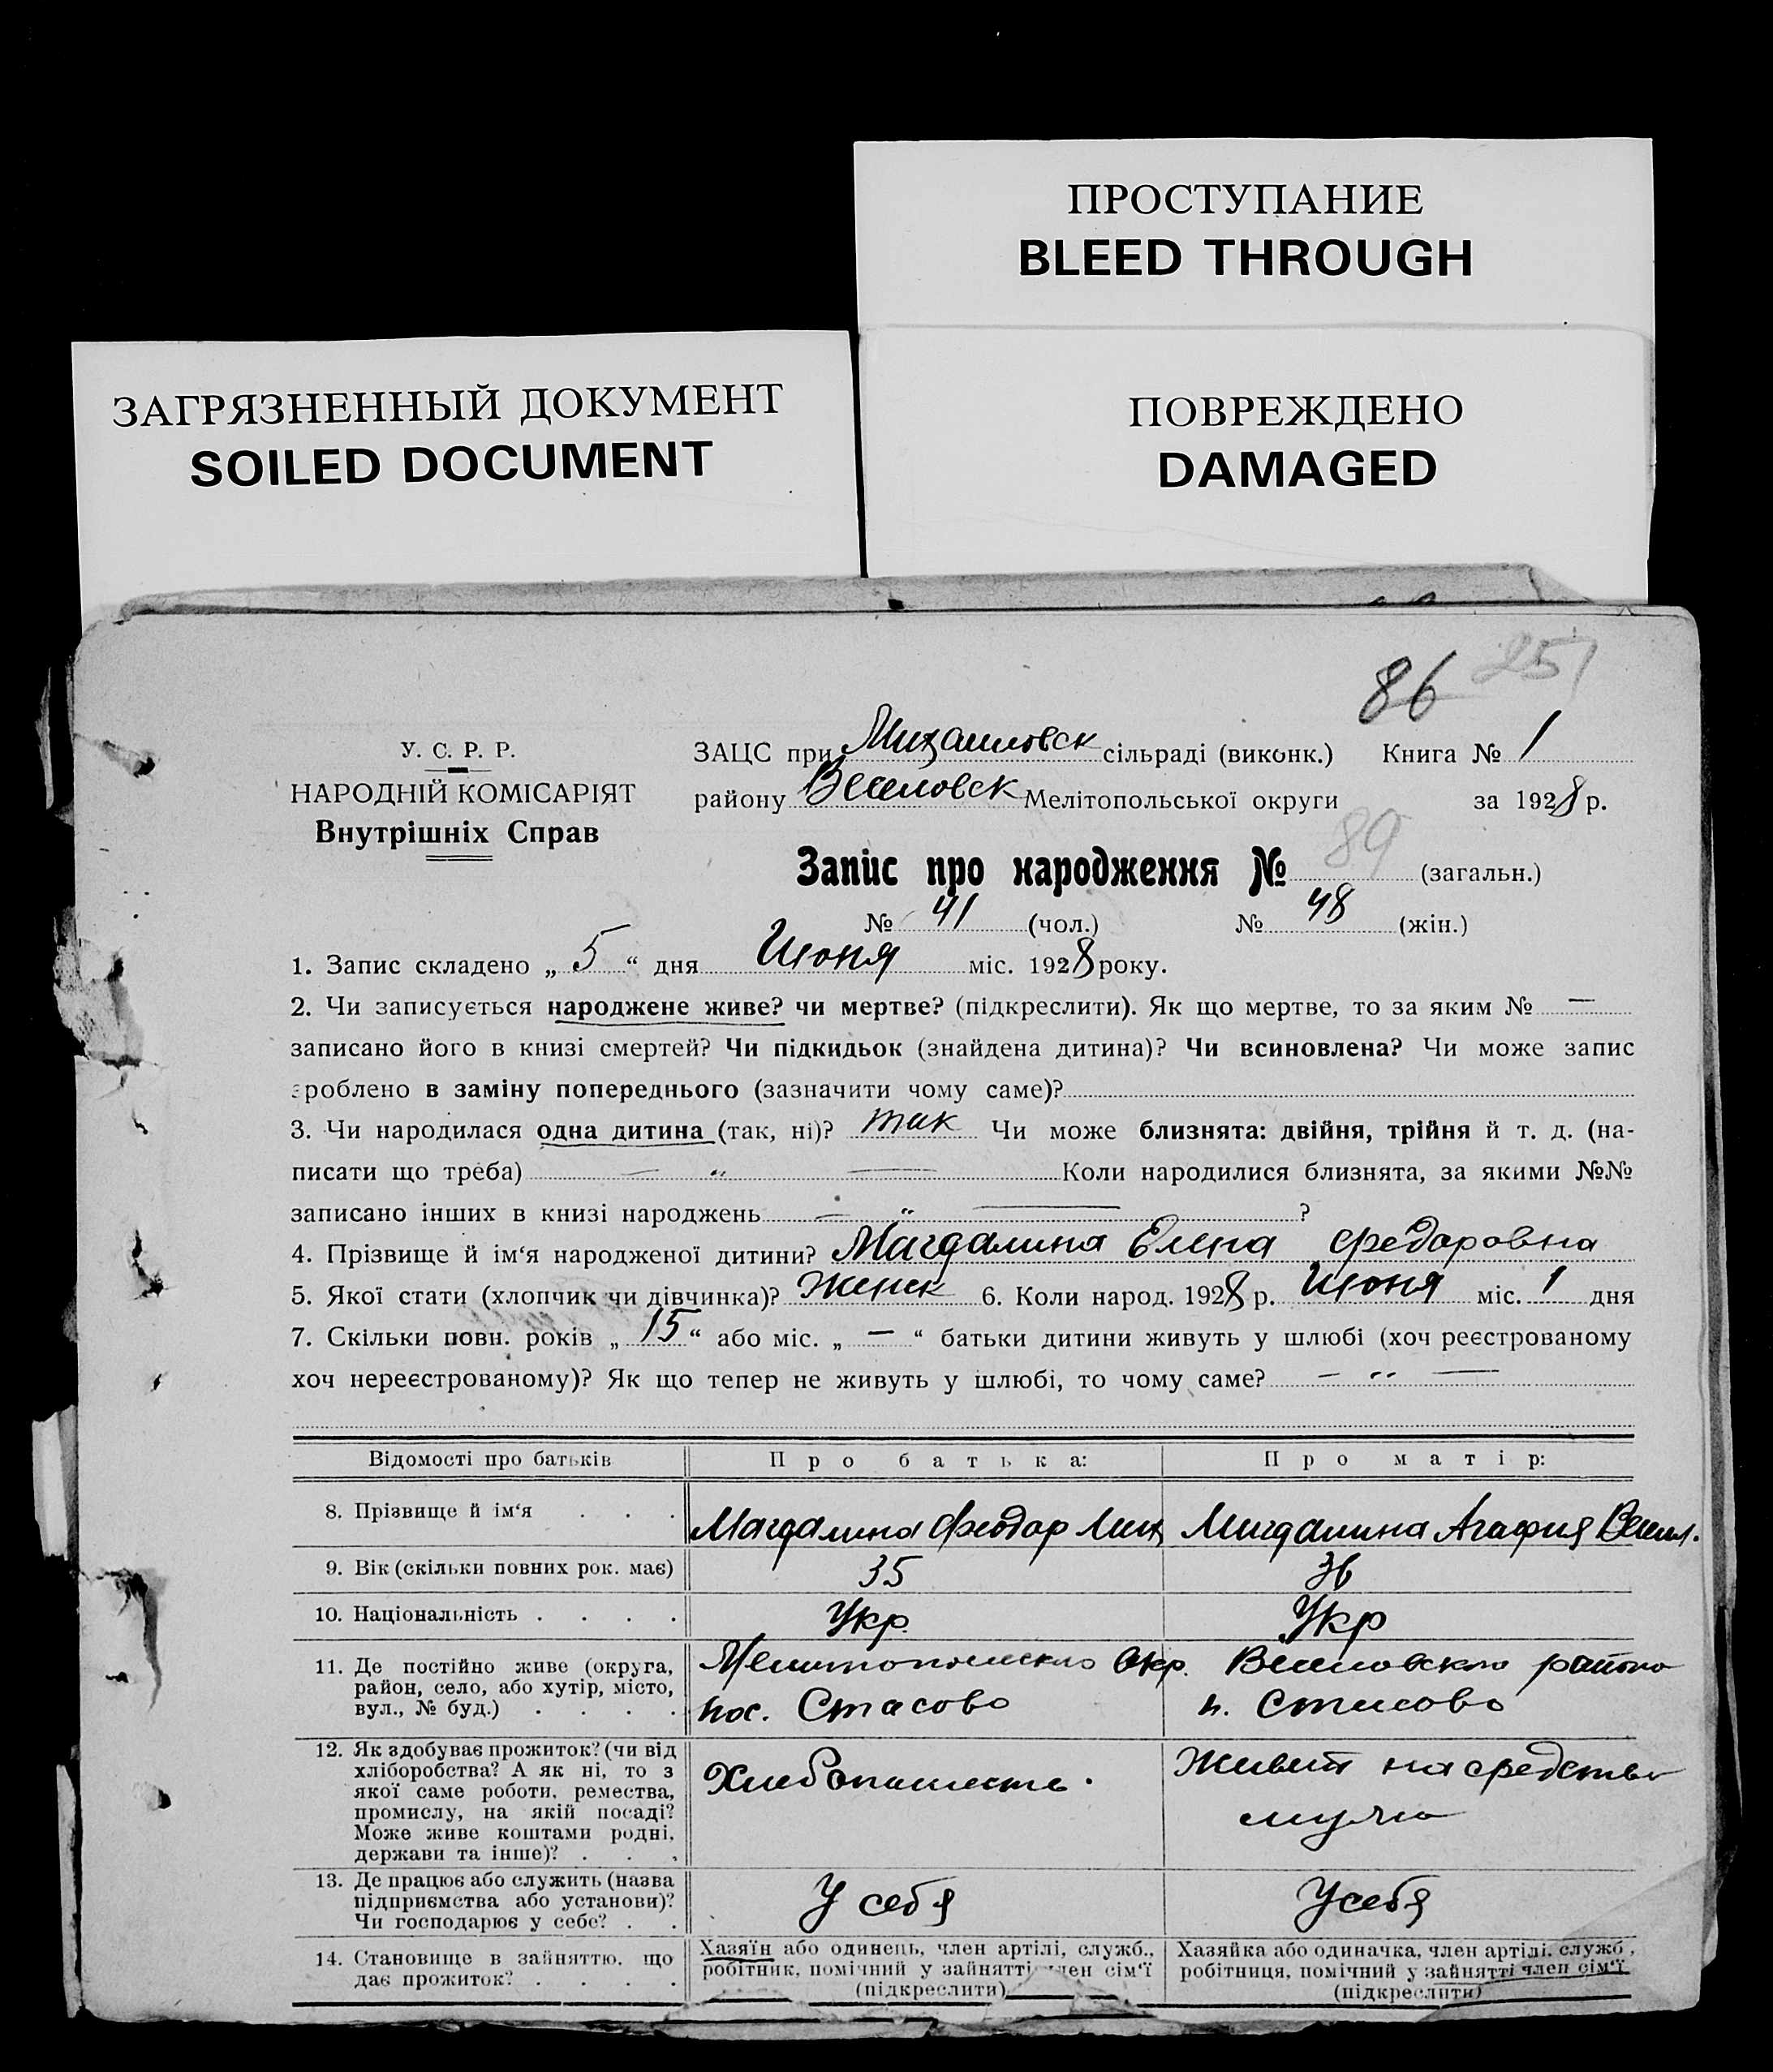 ПРОСТУПАНИЕ
BLEED THROUGH
ЗАГРЯЗНЕННЫЙ ДОКУМЕНТ
SOILED DOCUMENT
ПОВРЕЖДЕНО
DAMAGED
86 251
У. С. Р. Р.
НАРОДНІЙ КОМІСАРІЯТ
Внутрішніх Справ
ЗАЦС при Михайловск сільраді (виконк.) Книга № 1
району Веселовск Мелітопольської округи за 1928 р.
Запис про народження № 89 (загальн.)
№ 41 (чол.) № 48 (жін.)
1. Запис складено „ 5 “ дня Июня міс. 1928 року.
2. Чи записується народжене живе? чи мертве? (підкреслити). Як що мертве, то за яким № —
записано його в книзі смертей? Чи підкидьок (знайдена дитина)? Чи всиновлена? Чи може запис
зроблено в заміну попереднього (зазначити чому саме)?
3. Чи народилася одна дитина (так, ні)? так Чи може близнята: двійня, трійня й т. д. (на-
писати що треба) — „ — Коли народилися близнята, за якими №№
записано інших в книзі народжень — „ — ?
4. Прізвище й ім‘я народженої дитини? Магдалина Елена Федоровна
5. Якої стати (хлопчик чи дівчинка)? Женск 6. Коли народ. 1928 р. Июня міс. 1 дня
7. Скільки повн. років „ 15 “ або міс. „ — “ батьки дитини живуть у шлюбі (хоч реєстрованому
хоч нереєстрованому)? Як що тепер не живуть у шлюбі, то чому саме? — „ —
Відомості про батьків Про батька: Про матір:
8. Прізвище й ім‘я Магдалина Феодор Мих Магдалина Агафия Васил.
9. Вік (скільки повних рок. має) 35 36
10. Національність Укр. Укр
11. Де постійно живе (округа, район, село, або хутір, місто, вул., № буд.)
Мелитопольского Окр. Веселовского района
пос. Стасово п. Стасово
12. Як здобуває прожиток? (чи від хліборобства? А як ні, то з якої саме роботи, ремества, промислу, на якій посаді? Може живе коштами родні, держави та інше)?
Хлебопашеств. Живет на средства
мужа
13. Де працює або служить (назва підприємства або установи)? Чи господарює у себе?
У себя У себя
14. Становище в зайняттю, що дає прожиток?
Хазяїн або одинець, член артілі, служб., робітник, помічний у зайнятті член сім‘ї (підкреслити)
Хазяйка або одиначка, член артілі, служб., робітниця, помічний у зайнятті член сім‘ї (підкреслити)